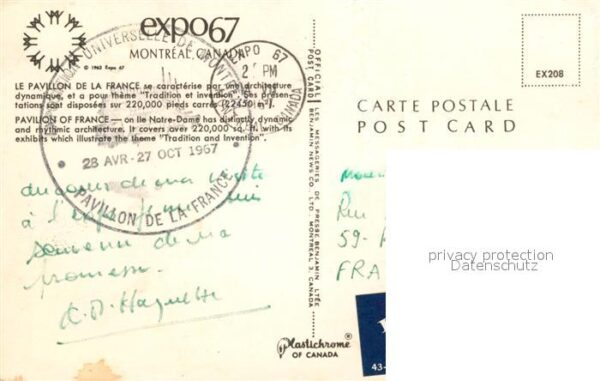 expo67
MONTRÉAL, CANADA
© 1963 Expo 67
LE PAVILLON DE LA FRANCE se caractérise par une architecture
dynamique, et a pour thème "Tradition et invention". Ses présen-
tations sont disposées sur 220,000 pieds carrés (22450 m²).
PAVILION OF FRANCE — on Ile Notre-Dame has distinctly dynamic
and rhythmic architecture. It covers over 220,000 sq. ft. with its
exhibits which illustrate the theme "Tradition and Invention".
UNIVERSELLE DE
28 AVR-27 OCT 1967
PAVILLON DE LA FRANCE
EXPO 67
PM
CANADA
de ma visite
à l'expo
souvenir de ma
promesse.
OFFICIAL POST CARD
LES MESSAGERIES DE PRESSE BENJAMIN LTÉE
BENJAMIN NEWS CO. LTD. MONTREAL 3, CANADA
Plastichrome®
OF CANADA
EX208
CARTE POSTALE
POST CARD
Rue
59-
FRA
43-
privacy protection
Datenschutz